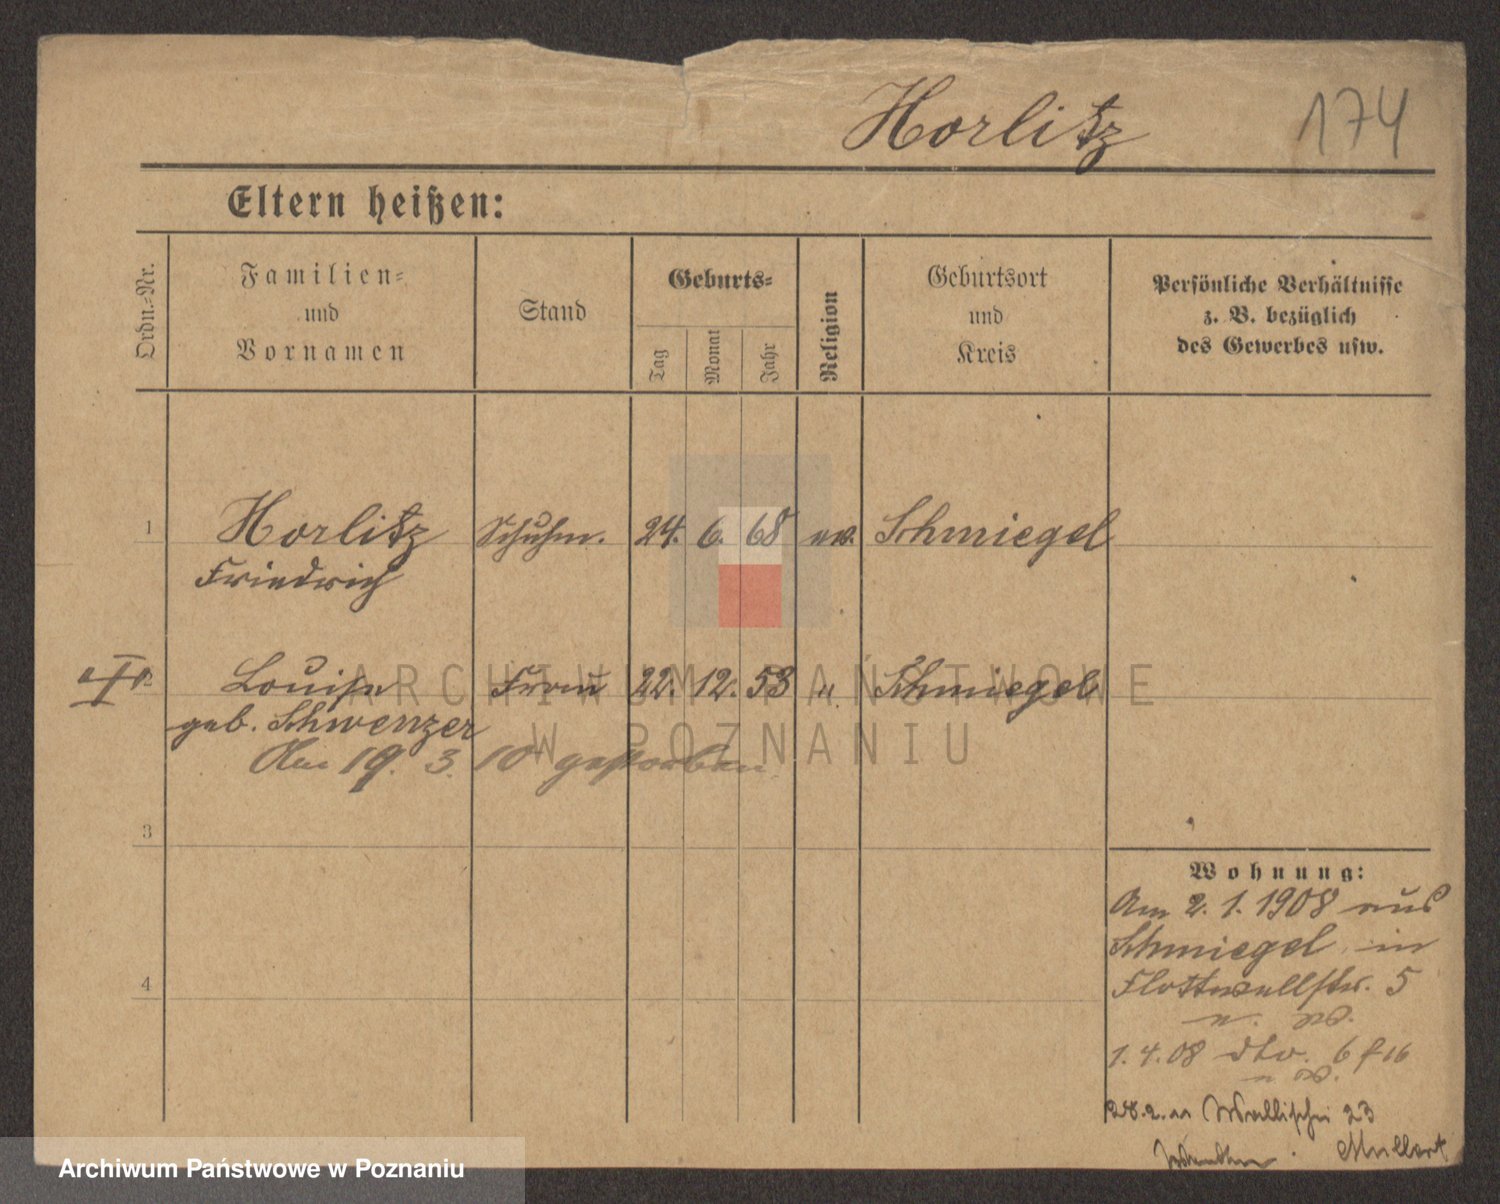 Horlitz 174
Eltern heißen:
Ordn.-Nr.
Familien- und Vornamen
Stand
Geburts-
Tag
Monat
Jahr
Religion
Geburtsort und Kreis
Persönliche Verhältnisse
z. B. bezüglich
des Gewerbes usw.
1 Horlitz Schuhm. 24. 6. 68 ev. Schmiegel
Friedrich
Louise Frau 22. 12. 53 " Schmiegel
geb. Schwenzer
Am 19. 3. 10 gestorben.
3
4
Wohnung:
Am 2. 1. 1908 aus
Schmiegel in
Flottwellstr. 5
1. 4. 08 dto. 6
28.2.11 Wallischei 23
ARCHIWUM PAŃSTWOWE
W POZNANIU
Archiwum Państwowe w Poznaniu